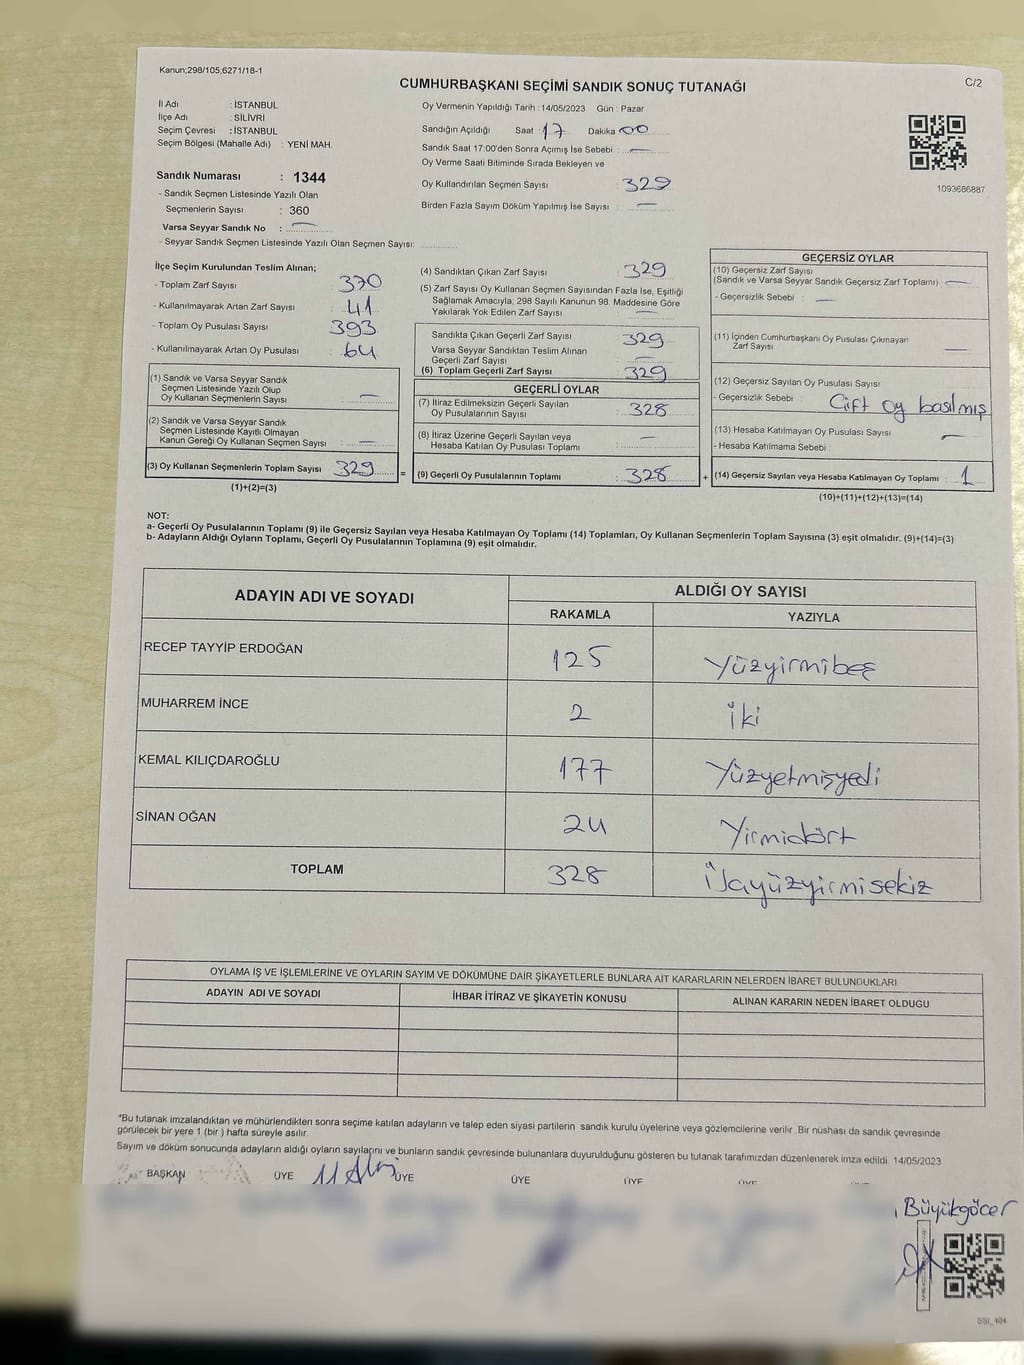 Kanun;298/105;6271/18-1
C/2
CUMHURBAŞKANI SEÇİMİ SANDIK SONUÇ TUTANAĞI
İl Adı : İSTANBUL
İlçe Adı : SİLİVRİ
Seçim Çevresi : İSTANBUL
Seçim Bölgesi (Mahalle Adı) : YENİ MAH.
Sandık Numarası : 1344
- Sandık Seçmen Listesinde Yazılı Olan
Seçmenlerin Sayısı : 360
Varsa Seyyar Sandık No : —
- Seyyar Sandık Seçmen Listesinde Yazılı Olan Seçmen Sayısı:
Oy Vermenin Yapıldığı Tarih : 14/05/2023 Gün : Pazar
Sandığın Açıldığı Saat 17 Dakika 00
Sandık Saat 17:00'den Sonra Açımış İse Sebebi : —
Oy Verme Saati Bitiminde Sırada Bekleyen ve
Oy Kullandırılan Seçmen Sayısı : 329
Birden Fazla Sayım Döküm Yapılmış İse Sayısı : —
1093686887
İlçe Seçim Kurulundan Teslim Alınan;
- Toplam Zarf Sayısı : 370
- Kullanılmayarak Artan Zarf Sayısı : 41
- Toplam Oy Pusulası Sayısı : 393
- Kullanılmayarak Artan Oy Pusulası : 64
(1) Sandık ve Varsa Seyyar Sandık
Seçmen Listesinde Yazılı Olup
Oy Kullanan Seçmenlerin Sayısı : —
(2) Sandık ve Varsa Seyyar Sandık
Seçmen Listesinde Kayıtlı Olmayan
Kanun Gereği Oy Kullanan Seçmen Sayısı : —
(3) Oy Kullanan Seçmenlerin Toplam Sayısı : 329 =
(1)+(2)=(3)
(4) Sandıktan Çıkan Zarf Sayısı : 329
(5) Zarf Sayısı Oy Kullanan Seçmen Sayısından Fazla İse, Eşitliği
Sağlamak Amacıyla; 298 Sayılı Kanunun 98. Maddesine Göre
Yakılarak Yok Edilen Zarf Sayısı : —
Sandıkta Çıkan Geçerli Zarf Sayısı : 329
Varsa Seyyar Sandıktan Teslim Alınan
Geçerli Zarf Sayısı : —
(6) Toplam Geçerli Zarf Sayısı : 329
GEÇERLİ OYLAR
(7) İtiraz Edilmeksizin Geçerli Sayılan
Oy Pusulalarının Sayısı : 328
(8) İtiraz Üzerine Geçerli Sayılan veya
Hesaba Katılan Oy Pusulası Toplamı : —
(9) Geçerli Oy Pusulalarının Toplamı : 328 +
GEÇERSİZ OYLAR
(10) Geçersiz Zarf Sayısı
(Sandık ve Varsa Seyyar Sandık Geçersiz Zarf Toplamı) : —
- Geçersizlik Sebebi : —
(11) İçinden Cumhurbaşkanı Oy Pusulası Çıkmayan
Zarf Sayısı : —
(12) Geçersiz Sayılan Oy Pusulası Sayısı
- Geçersizlik Sebebi : Çift oy basılmış
(13) Hesaba Katılmayan Oy Pusulası Sayısı : —
- Hesaba Katılmama Sebebi :
(14) Geçersiz Sayılan veya Hesaba Katılmayan Oy Toplamı : 1
(10)+(11)+(12)+(13)=(14)
NOT:
a- Geçerli Oy Pusulalarının Toplamı (9) ile Geçersiz Sayılan veya Hesaba Katılmayan Oy Toplamı (14) Toplamları, Oy Kullanan Seçmenlerin Toplam Sayısına (3) eşit olmalıdır. (9)+(14)=(3)
b- Adayların Aldığı Oyların Toplamı, Geçerli Oy Pusulalarının Toplamına (9) eşit olmalıdır.
ADAYIN ADI VE SOYADI
ALDIĞI OY SAYISI
RAKAMLA YAZIYLA
RECEP TAYYİP ERDOĞAN 125 Yüzyirmibeş
MUHARREM İNCE 2 İki
KEMAL KILIÇDAROĞLU 177 Yüzyetmişyedi
SİNAN OĞAN 24 Yirmidört
TOPLAM 328
OYLAMA İŞ VE İŞLEMLERİNE VE OYLARIN SAYIM VE DÖKÜMÜNE DAİR ŞİKAYETLERLE BUNLARA AİT KARARLARIN NELERDEN İBARET BULUNDUKLARI
ADAYIN ADI VE SOYADI İHBAR İTİRAZ VE ŞİKAYETİN KONUSU ALINAN KARARIN NEDEN İBARET OLDUĞU
*Bu tutanak imzalandıktan ve mühürlendikten sonra seçime katılan adayların ve talep eden siyasi partilerin sandık kurulu üyelerine veya gözlemcilerine verilir. Bir nüshası da sandık çevresinde
görülecek bir yere 1 (bir ) hafta süreyle asılır.
Sayım ve döküm sonucunda adayların aldığı oyların sayılarını ve bunların sandık çevresinde bulunanlara duyurulduğunu gösteren bu tutanak tarafımızdan düzenlenerek imza edildi. 14/05/2023
BAŞKAN ÜYE ÜYE ÜYE ÜYE ÜYE
Büyükgöcer